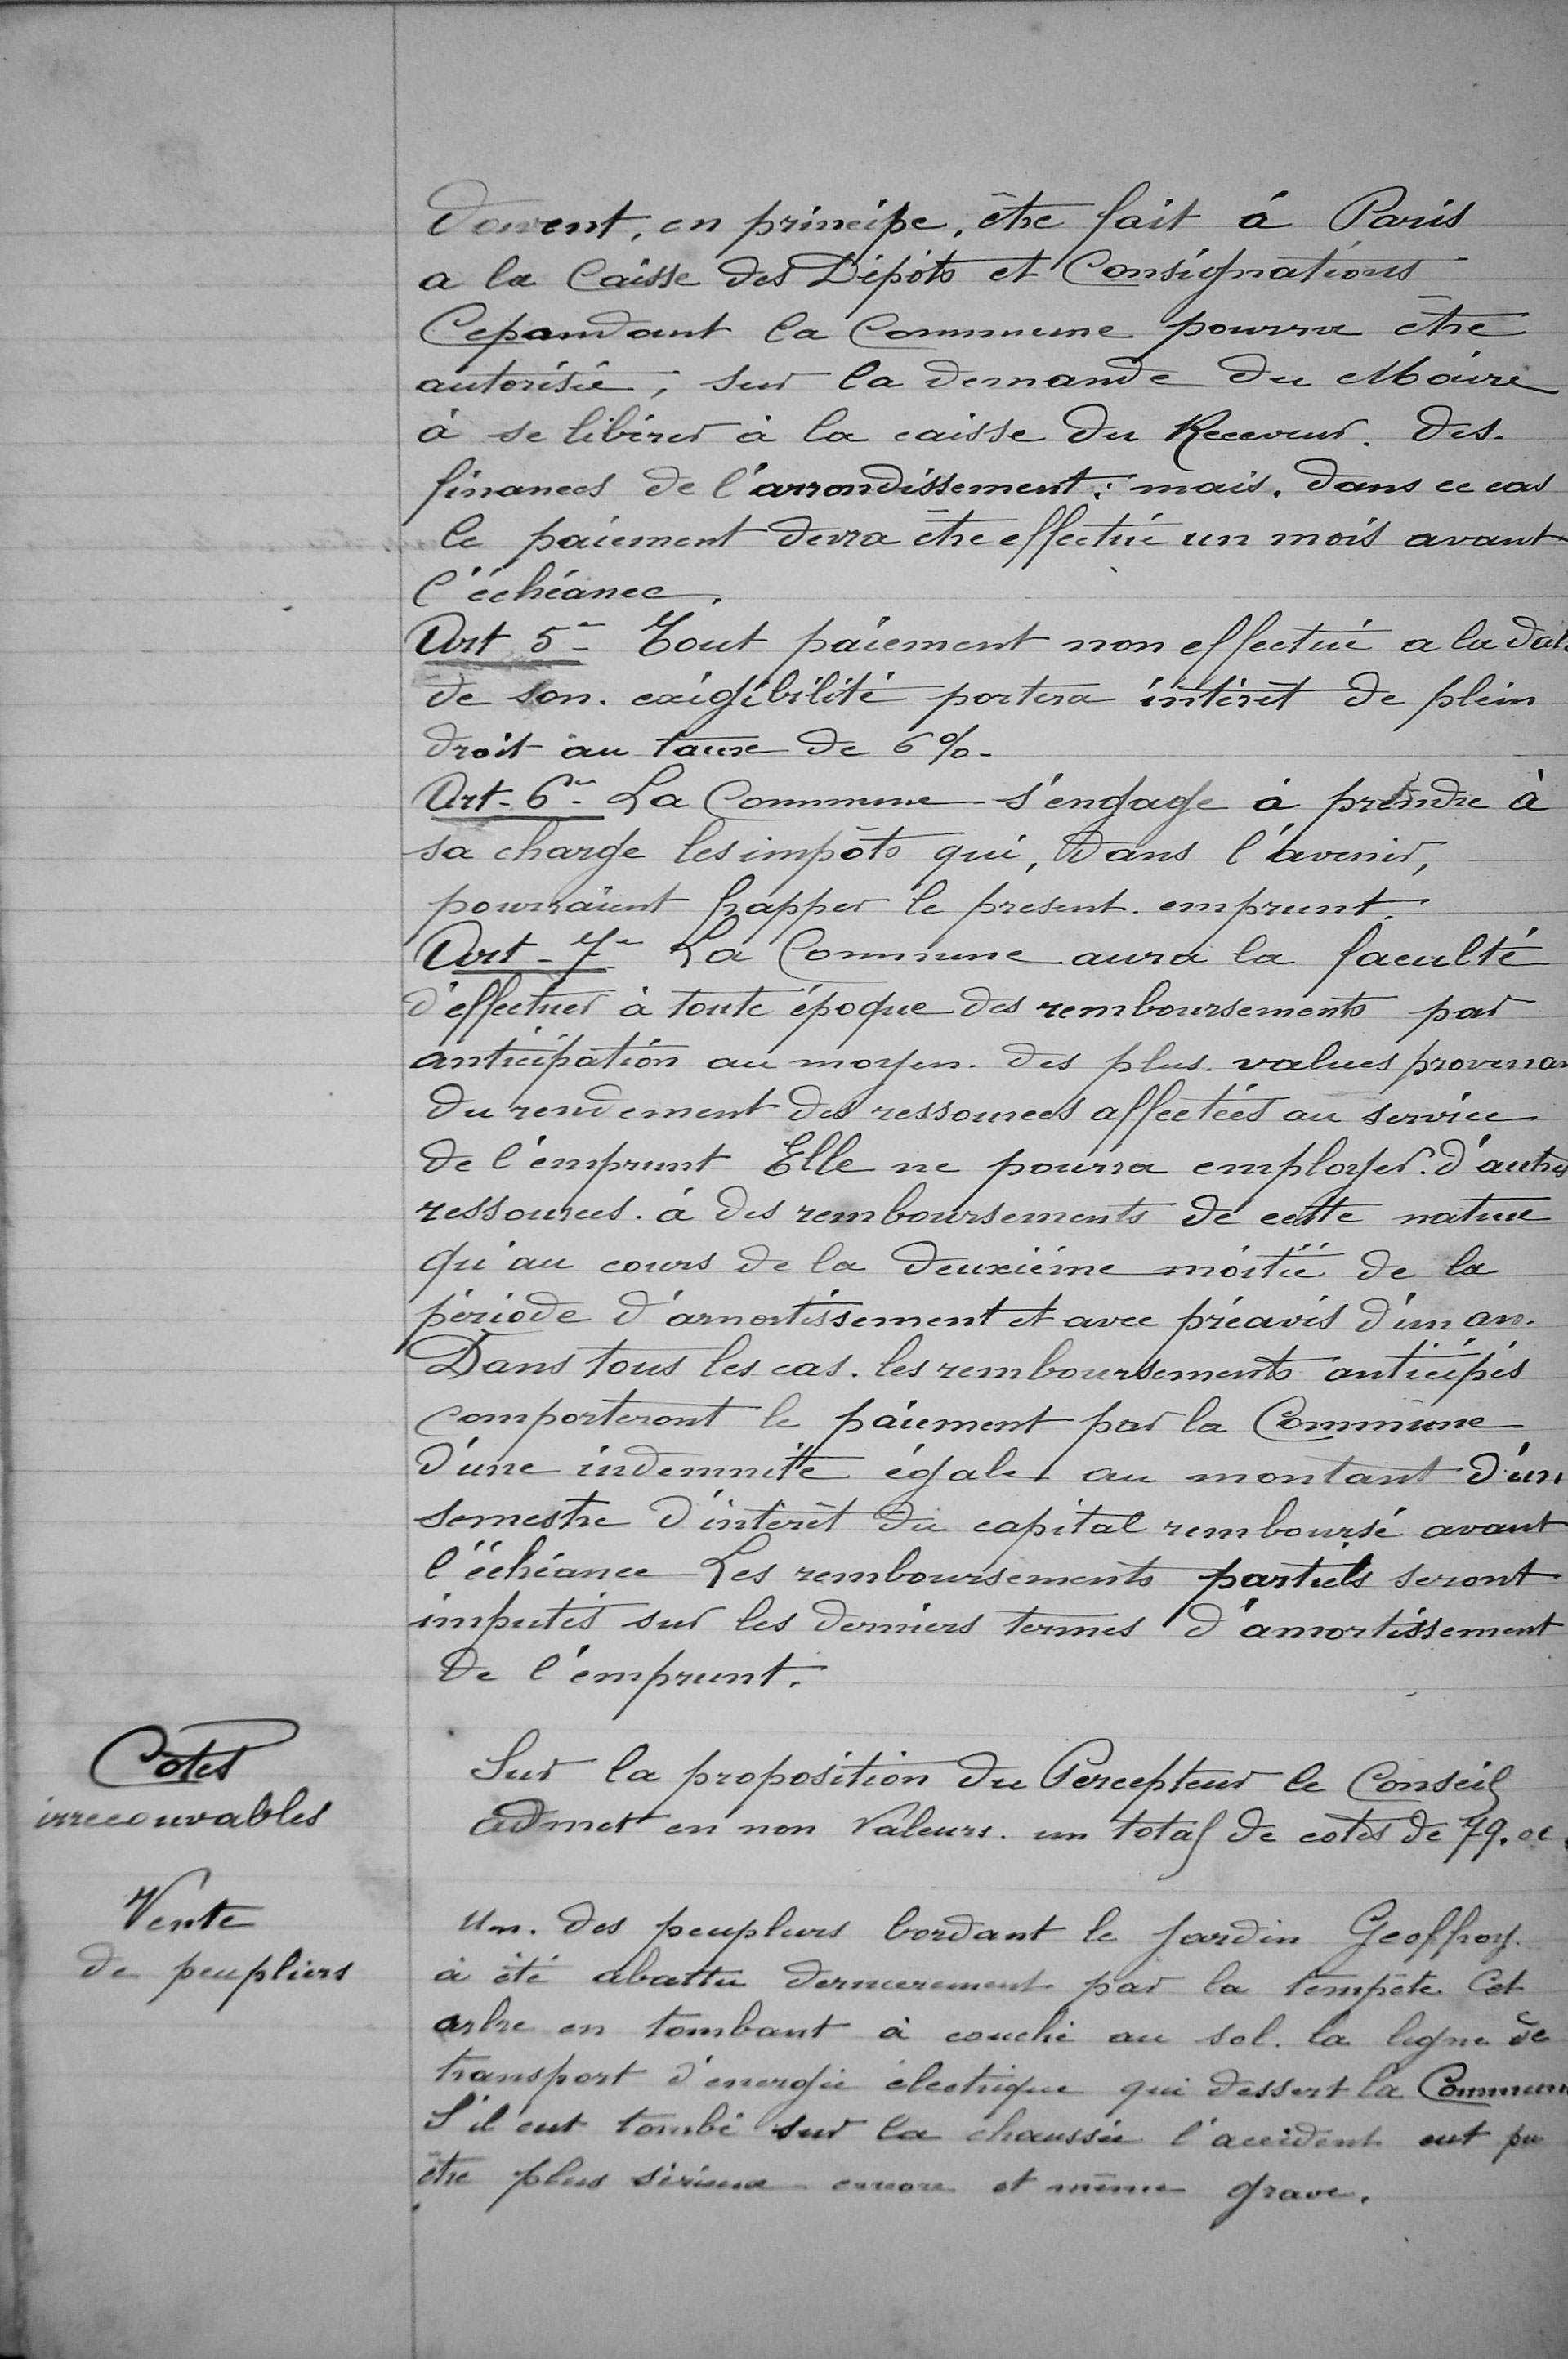 doivent, en principe, être fait à Paris
a la Caisse des Dépôts et Consignations
Cependant la Commune pourra être
autorisée, sur la demande du Maire
à se libérer à la caisse du Receveur. des.
finances de l'arrondissement; mais, dans ce cas
le paiement devra être effectué un mois avant
l'échéance.
Art 5e - Tout paiement non effectué a la date
de son. exigibilité portera intérêt de plein
droit au taux de 6%-
Art- 6e - La Commune s'engage à prendre à
sa charge les impôts qui, dans l'avenir,
pourraient frapper le present. emprunt.
Art - 7e La Commune aura la faculté
d'effectuer à toute époque des remboursements par
anticipation au moyen. des plus. values provenan
du rendement des ressources affectées au service
de l'emprunt Elle ne pourra employer. d'autres
ressources. à des remboursements de cette nature
qu'au cours de la deuxième moitié de la
période d'amortissement et avec préavis d'un an.
Dans tous les cas. les remboursements anticipés
comporteront le paiement par la Commune
d'une indemnité égale au montant d'un
semestre d'intérêt du capital remboursé avant
l'échéance Les remboursements partiels seront
imputés sur les derniers termes d'amortissement
de l'emprunt.
Cotes
irrecouvables
Sur la proposition du Percepteur le Conseil
admet en non Valeurs. un total de cotes de 79.
Vente
de peupliers
Un. des peupliers bordant le Jardin Geoffroy.
à été abattu dernierement par la tempête. Cet
arbre en tombant à couché au sol. la ligne de
transport d'énergie électrique qui dessert la Commun
S'il eut tombé sur la chaussée l'accident eut pu
être plus sérieux encore et même grave.